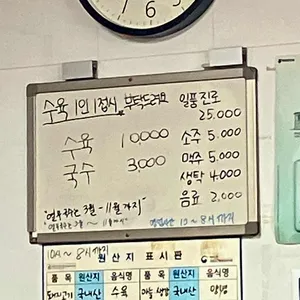 수육 1인 1접시 부탁드려요
일품진로
25,000
수육 10000
국수 3,000
소주 5,000
맥주 5,000
생탁 4,000
음료 2,000
3월 ~ 11월까지
10 ~ 8시까지
10시 ~ 8시까지
원산지 표시판
품목 원산지 음식명 품목 원산지 음식명
돼지고기 국내산 수육 마늘 쌈장 국내산 양념